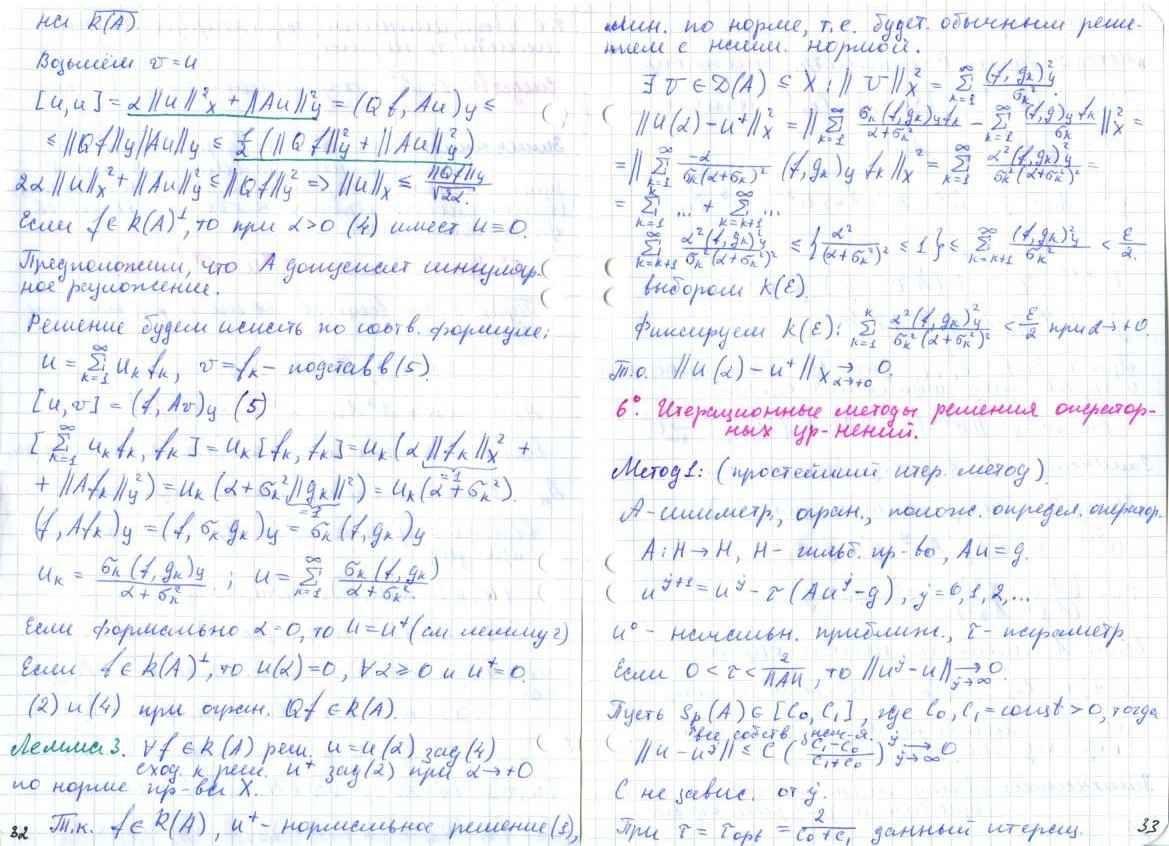 на R(A).
Возьмём v=u
[u,u] = α||u||²_X + ||Au||²_Y = (Qf, Au)_Y ≤
≤ ||Qf||_Y ||Au||_Y ≤ 1/2 (||Qf||²_Y + ||Au||²_Y)
2α||u||²_X + ||Au||²_Y ≤ ||Qf||²_Y => ||u||_X ≤ ||Qf||_Y / √2α.
Если f∈R(A)^⊥, то при α>0 (4) имеет u≡0.
Предположим, что A допускает сингуляр-
ное разложение.
Решение будем искать по соотв. формуле:
u = Σ_{k=1}^∞ u_k f_k, v=f_k – подстав в (5).
[u,v] = (f, Av)_Y (5)
[Σ_{k=1}^∞ u_k f_k, f_k] = u_k [f_k, f_k] = u_k (α ||f_k||²_X +
=1
+ ||Af_k||²_Y) = u_k (α + σ_k² ||g_k||²) = u_k (α + σ_k²).
=1
(f, Af_k)_Y = (f, σ_k g_k)_Y = σ_k (f, g_k)_Y
u_k = σ_k (f, g_k)_Y / (α + σ_k²) ; u = Σ_{k=1}^∞ σ_k (f, g_k) / (α + σ_k²)
Если формально α=0, то u=u⁺ (см лемму 2)
Если f∈R(A)^⊥, то u(α)=0, ∀α≥0 и u⁺=0.
(2) и (4) при огран. Qf∈R(A).
Лемма 3. ∀f∈R(A) реш. u=u(α) зад(4)
сход. к реш. u⁺ зад(2) при α→+0
по норме пр-ва X.
32 Т.к. f∈R(A), u⁺ – нормальное решение (1),
мин. по норме, т.е. будет обычным реше-
нием с наим. нормой.
∃ v∈D(A) ≤ X: ||v||²_X = Σ_{k=1}^∞ (f, g_k)²_Y / σ_k².
||u(α) – u⁺||²_X = ||Σ_{k=1}^∞ σ_k (f, g_k)_Y f_k / (α+σ_k²) – Σ_{k=1}^∞ (f, g)_Y f_k / σ_k||²_X =
= ||Σ_{k=1}^∞ –α / (σ_k (α+σ_k)²) (f, g_k)_Y f_k||²_X = Σ_{k=1}^∞ α² (f, g_k)²_Y / (σ_k² (α+σ_k²)²) =
= Σ_{k=1}^k ... + Σ_{k=k+1}^∞ ...
Σ_{k=k+1}^∞ α² (f, g_k)²_Y / (σ_k² (α+σ_k²)²) ≤ {α² / (α+σ_k²)² ≤ 1} ≤ Σ_{k=k+1}^∞ (f, g_k)²_Y / σ_k² < ε/2.
выбором k(ε).
Фиксируем k(ε): Σ_{k=1}^k α² (f, g_k)²_Y / (σ_k² (α+σ_k²)²) < ε/2 при α→+0.
Т.о. ||u(α) – u⁺||_X →_{α→+0} 0.
6°. Итерационные методы решения оператор-
ных ур-нений.
Метод 1: (простейший итер. метод).
A – симметр., огран., полож. определ. оператор.
A: H→H, H – гильб. пр-во, Au=g.
u^{j+1} = u^j – τ (Au^j – g), j=0,1,2,...
u⁰ – начальн. приближ., τ – параметр.
Если 0<τ< 2/||A||, то ||u^j – u|| →_{j→∞} 0.
Пусть Sp(A) ∈ [C₀, C₁], где C₀, C₁=const>0, тогда
все собств. знач-я.
||u – u^j|| ≤ C ((C₁–C₀)/(C₁+C₀))^j →_{j→∞} 0
C не завис. от j.
При τ = τ_opt = 2/(C₀+C₁) данный итерац. 33